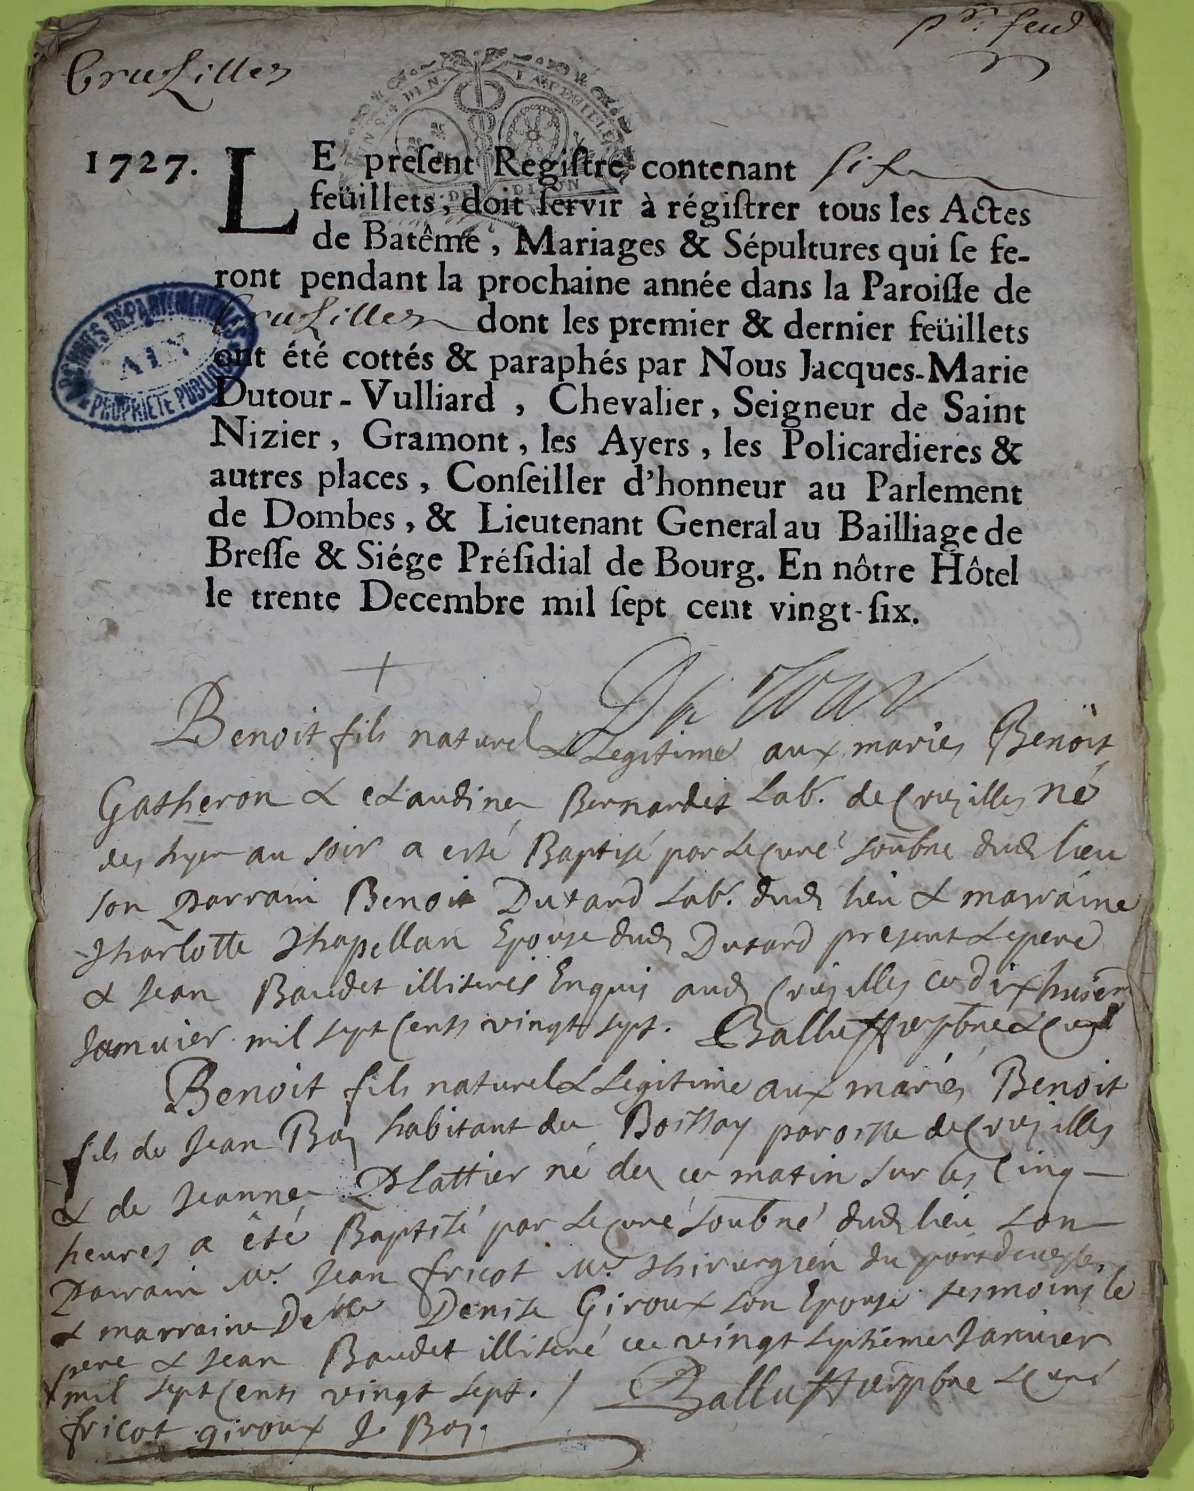 Cruzilles
pr. feuil
1727.
LE present Registre contenant six
feüillets, doit servir à régistrer tous les Actes
de Batême, Mariages & Sépultures qui se fe-
ront pendant la prochaine année dans la Paroisse de
Cruzilles dont les premier & dernier feüillets
ont été cottés & paraphés par Nous Jacques-Marie
Dutour-Vulliard, Chevalier, Seigneur de Saint
Nizier, Gramont, les Ayers, les Policardieres &
autres places, Conseiller d'honneur au Parlement
de Dombes, & Lieutenant General au Bailliage de
Bresse & Siége Présidial de Bourg. En nôtre Hôtel
le trente Decembre mil sept cent vingt-six.
ARCHIVES DÉPARTEMENTALES
AIN
PROPRIÉTÉ PUBLIQUE
Dutour
Benoit fils naturel & Legitime aux mariés Benoit
Gatheron & Claudine Bernardet Lab. de Cruzilles né
des hyer au soir a esté Baptisé par Le Curé soubné dud lieu
son Parrain Benoit Dutard Lab. dud lieu & marraine
Charlotte Chapellan Epouse dud Dutard present Le pere
& Jean Baudet illiterés Enquis aud Cruzilles ce dix huict
Janvier mil sept Cents vingt sept. Balluffier pbre & Curé
Benoit fils naturel & Legitime aux mariés Benoit
fils de Jean Boy habitant de Boissay paroisse de Cruzilles
& de Jeanne Plattier né de ce matin sur les Cinq
heures a été Baptisé par Le Curé soubné dud lieu son
Parrain Mr. Jean fricot Mr. Chirurgien du port de vesle
& marraine Delle Denise Giroux son Epouse tesmoins le
pere & Jean Baudet illiteré ce vingt septieme Janvier
mil sept Cents vingt sept. / Balluffier pbre & Curé
fricot giroux J. Boy.